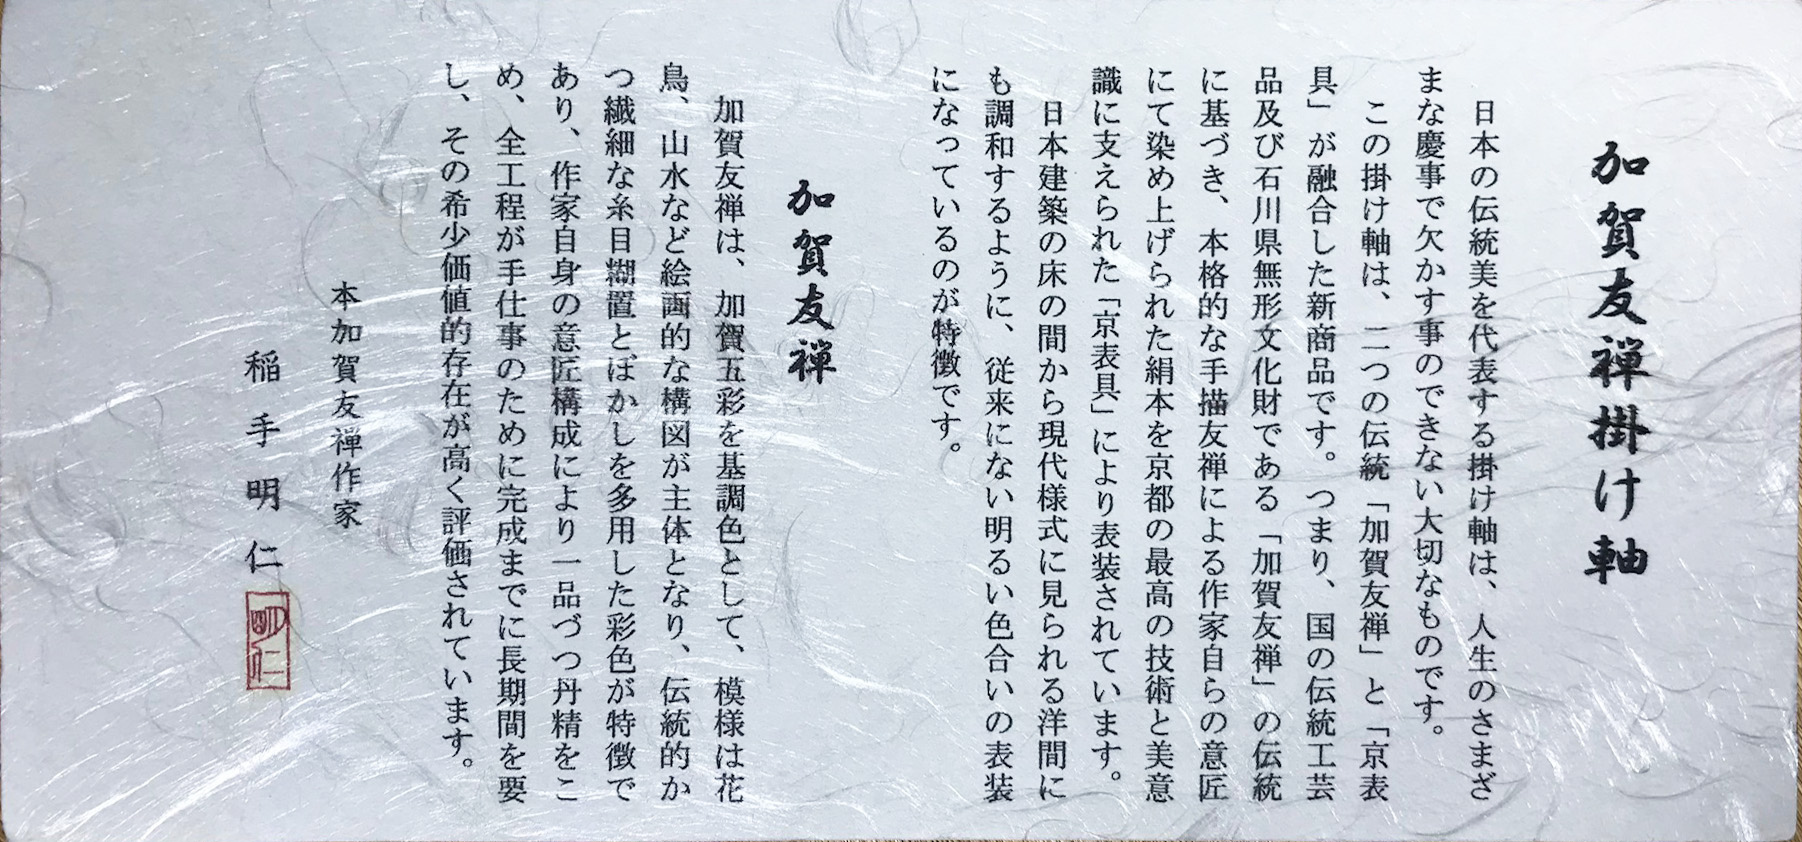 加賀友禅掛け軸
日本の伝統美を代表する掛け軸は、人生のさまざ
まな慶事で欠かす事のできない大切なものです。
この掛け軸は、二つの伝統「加賀友禅」と「京表
具」が融合した新商品です。つまり、国の伝統工芸
品及び石川県無形文化財である「加賀友禅」の伝統
に基づき、本格的な手描友禅による作家自らの意匠
にて染め上げられた絹本を京都の最高の技術と美意
識に支えられた「京表具」により表装されています。
日本建築の床の間から現代様式に見られる洋間に
も調和するように、従来にない明るい色合いの表装
になっているのが特徴です。
加賀友禅
加賀友禅は、加賀五彩を基調色として、模様は花
鳥、山水など絵画的な構図が主体となり、伝統的か
つ繊細な糸目糊置とぼかしを多用した彩色が特徴で
あり、作家自身の意匠構成により一品づつ丹精をこ
め、全工程が手仕事のために完成までに長期間を要
し、その希少価値的存在が高く評価されています。
本加賀友禅作家
稲手明仁
明仁